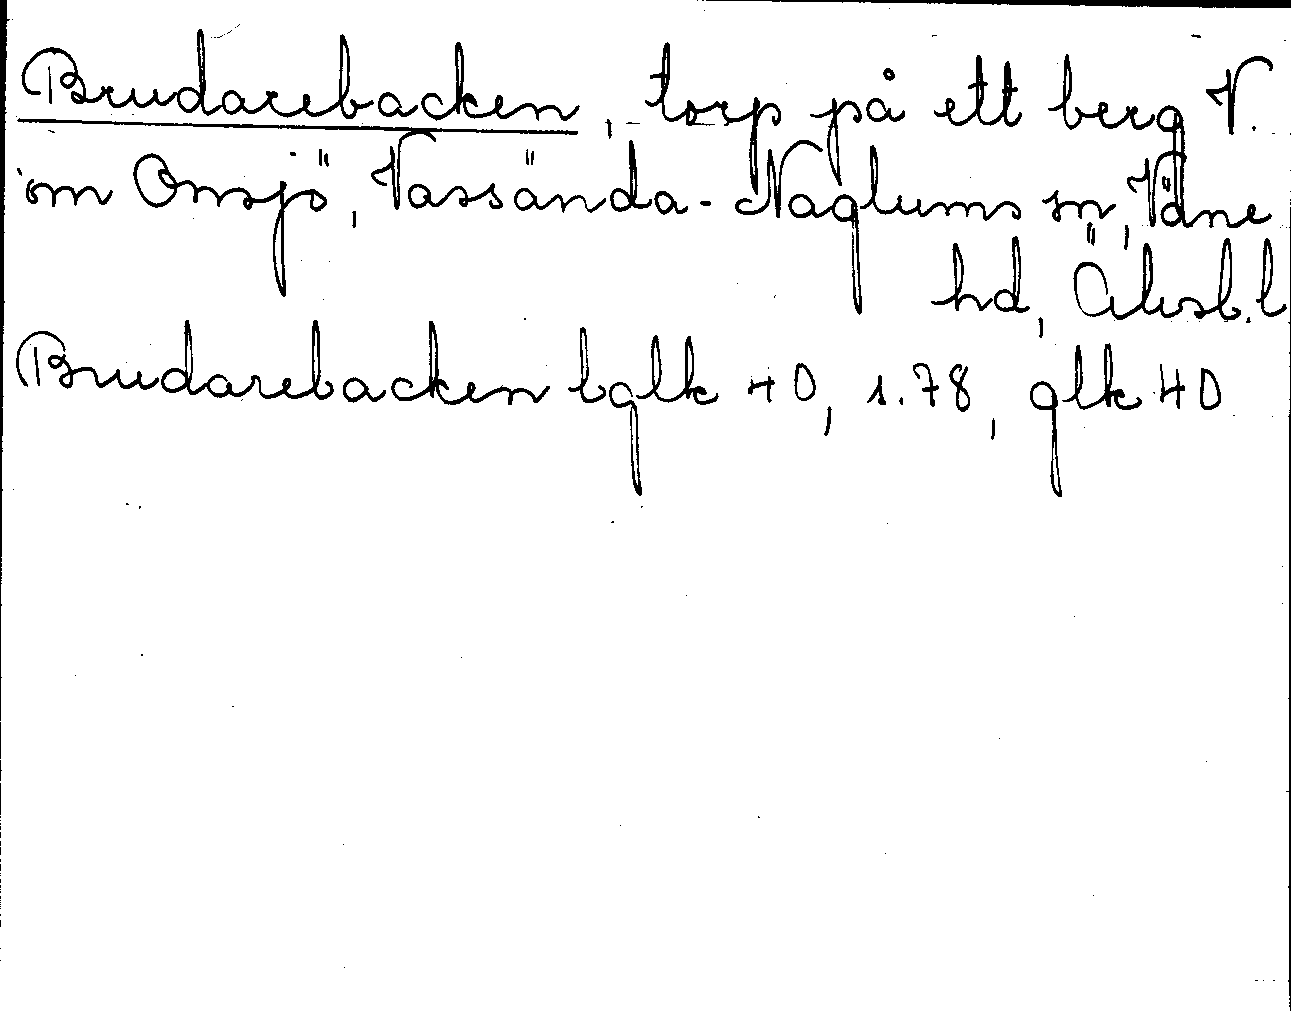 Brudarebacken, torp på ett berg V.
om Onsjö, Vassända-Naglums sn, Väne
hd, Älvsb. l
Brudarebacken bglk 40, s. 78, glk 40